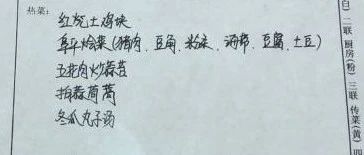 热菜:
红烧土鸡块
阜平烩菜(猪肉、豆角、粉条、海带、豆腐、土豆)
五花肉炒蒜苔
拍蒜茼蒿
冬瓜丸子汤
白)二联 厨房(粉)三联 传菜(黄)四